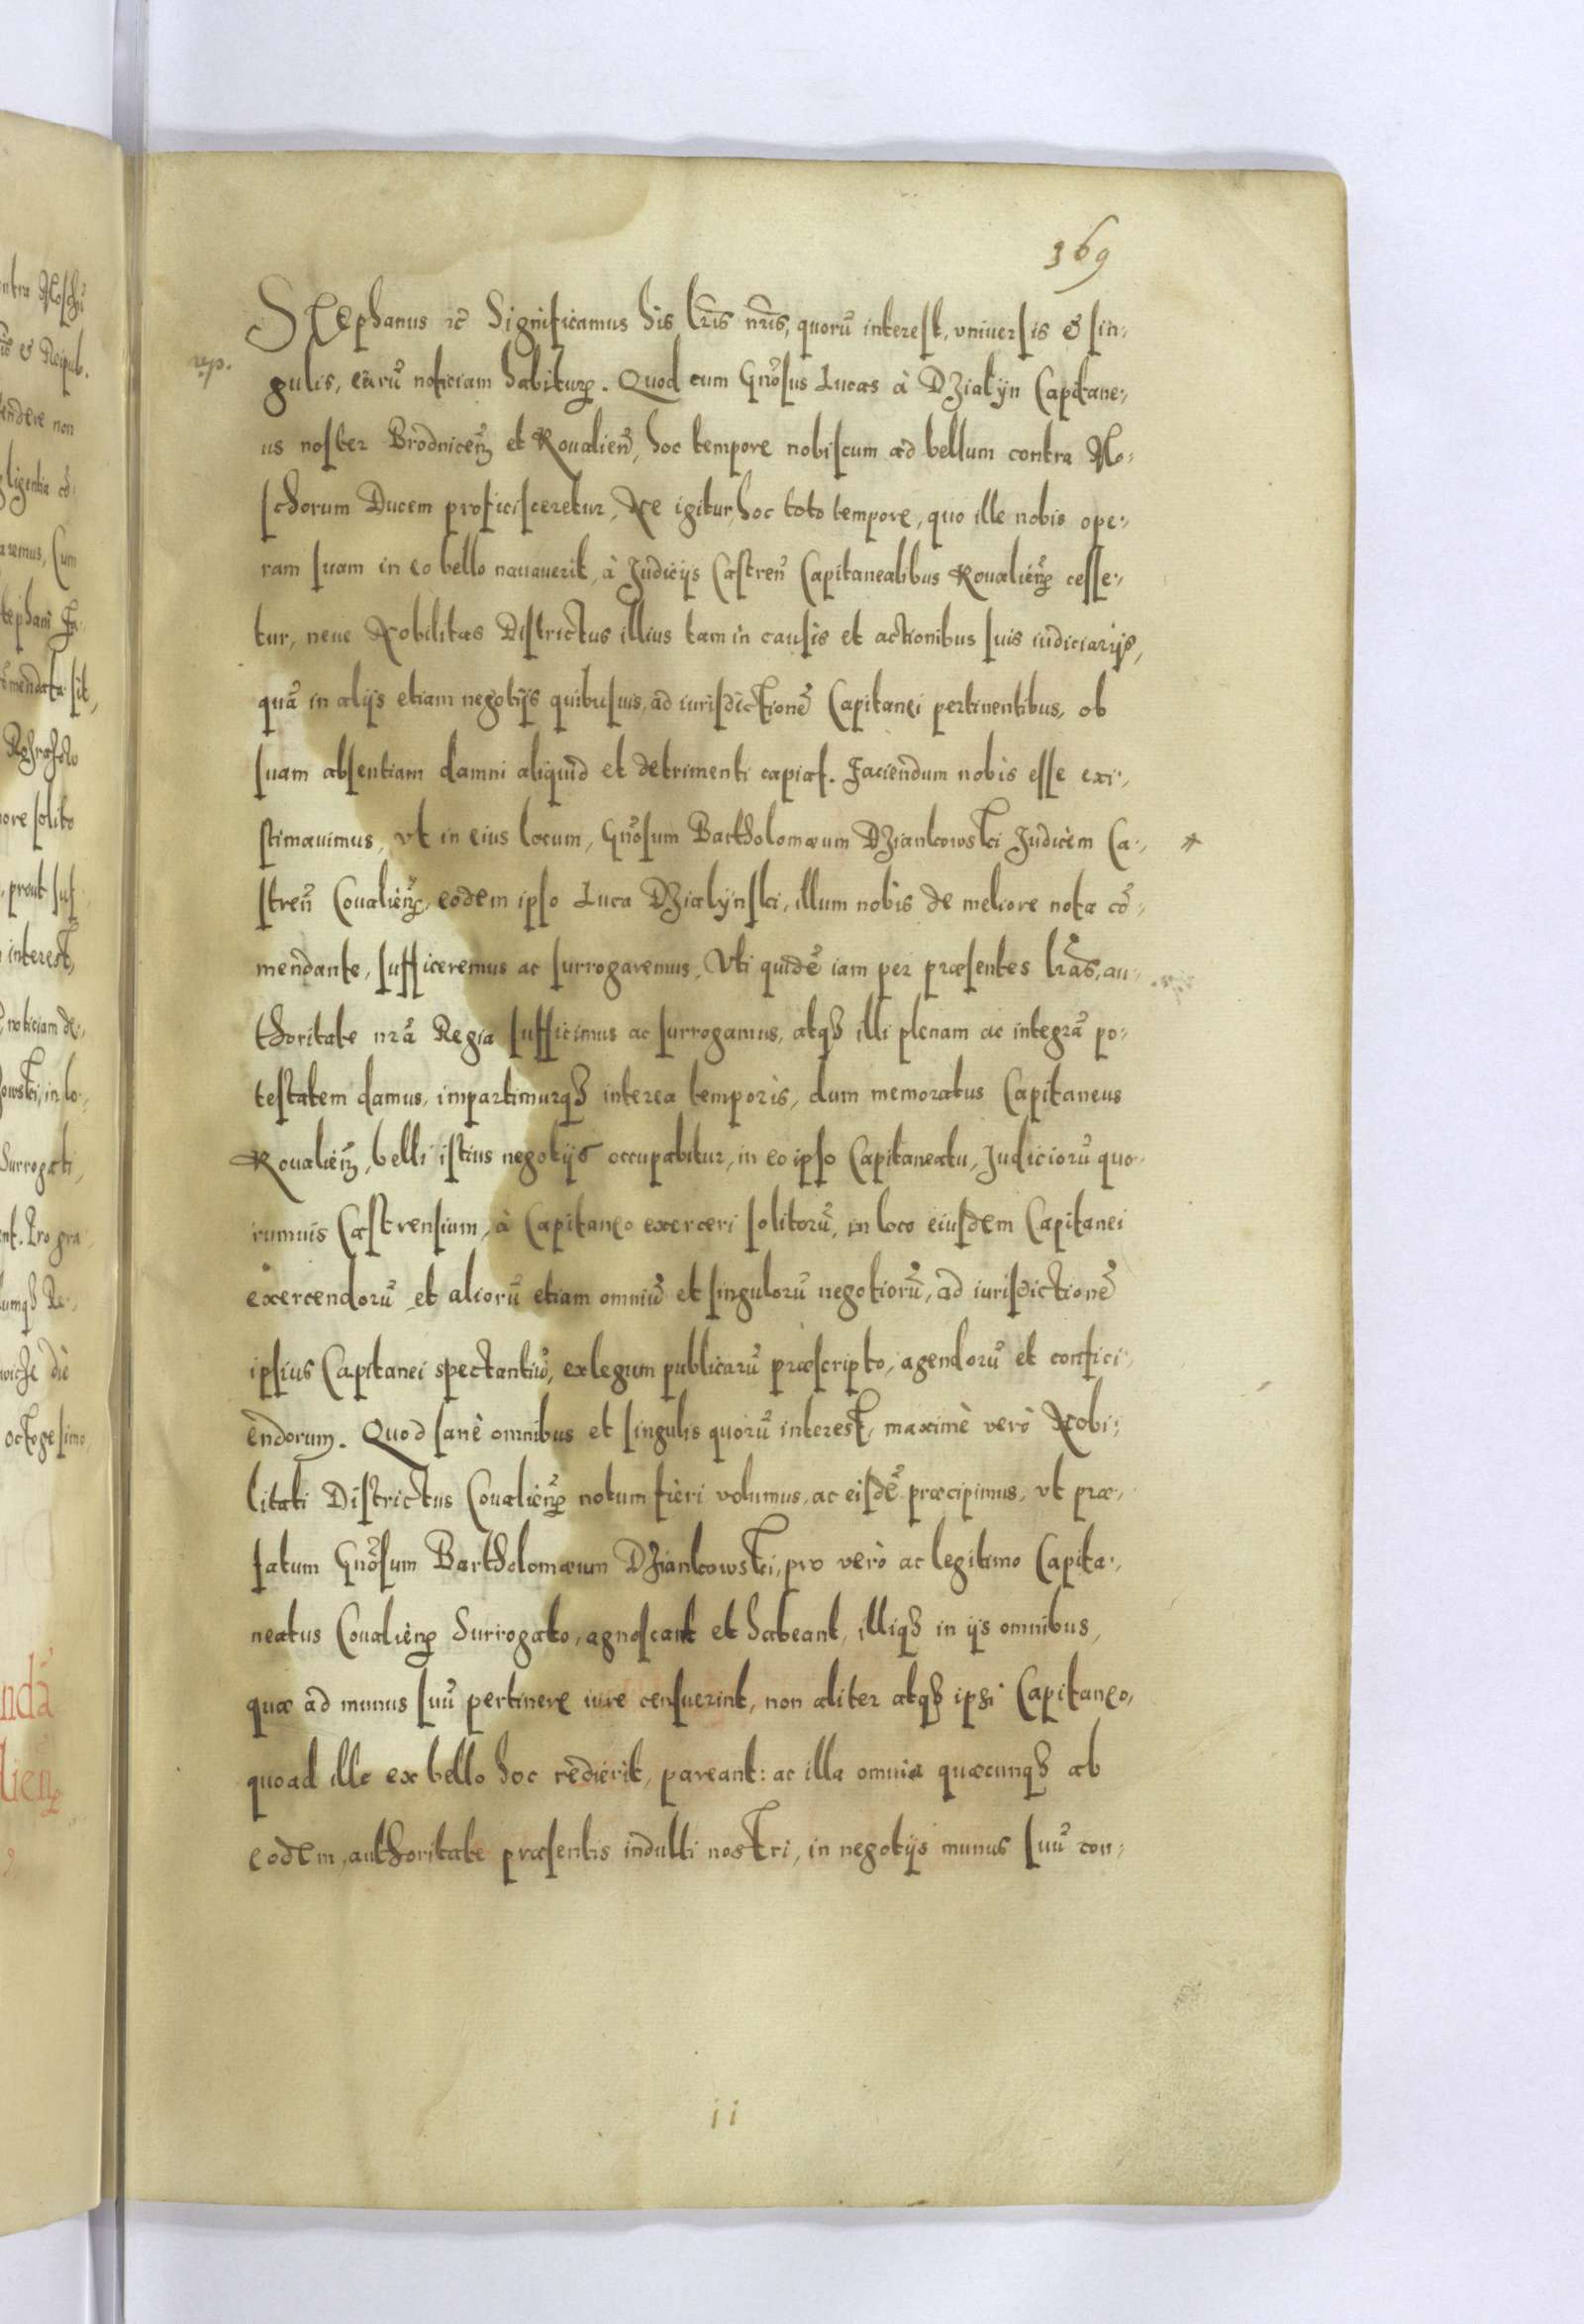 369
Stephanus etc̃ Significamus his lr̃is nr̃is, quorũ interest, vniuersis & sin:
rep.
gulis, earũ noticiam habitur. Quod cum Gnõsus Lucas à Dzialÿn Capitane:
us noster Brodnicen̄ et Koualien̄, hoc tempore nobiscum ad bellum contra Mo:
schorum Ducem proficisceretur, Ne igitur hoc toto tempore, quo ille nobis ope:
ram suam in eo bello nauauerit, à Judicijs Castren̄ Capitanealibus Koualien̄ cesse:
tur, neue Nobilitas Districtus illius tam in causis et actionibus suis iudiciarijs,
quã in alijs etiam negotijs quibusuis, ad iurisdictionẽ Capitanei pertinentibus, ob
suam absentiam damni aliquid et detrimenti capiat. Faciendum nobis esse exi:
stimauimus, vt in eius locum, Gnõsum Bartholomæum Dziankowski Judicem Ca:
*
stren̄ Coualien̄, eodem ipso Luca Dzialÿnski, illum nobis de meliore nota cõ:
mendante, sufficeremus ac surrogaremus, Vti quidẽ iam per præsentes lr̃as, au:
thoritate nr̃a Regia sufficimus ac surrogamus, atqз illi plenam ac integrã po:
testatem damus, impartimurqз interea temporis, dum memoratus Capitaneus
Koualien̄, belli istius negotijs occupabitur, in eo ipso Capitaneatu, Judiciorũ quo:
rumuis Castrensium, à Capitaneo exerceri solitorũ, in loco eiusdem Capitanei
exercendorũ et aliorũ etiam omniũ et singulorũ negotiorũ, ad iurisdictionẽ
ipsius Capitanei spectantiũ, ex legum publicarũ præscripto, agendorũ et confici:
endorum. Quod sanè omnibus et singulis quorũ interest, maximè verò Nobi:
litati Districtus Coualien̄ notum fieri volumus, ac eisdẽ præcipimus, vt præ:
fatum Gnõsum Bartholomæum Dziankowski, pro verò ac legitimo Capita:
neatus Coualien̄ Surrogato, agnoscant et habeant, illiqз in ijs omnibus,
quæ ad munus suũ pertinere iure censuerint, non aliter atqз ipsi Capitaneo,
quoad ille ex bello hoc redierit, pareant: ac illa omnia quæcunqз ab
eodem, authoritate præsentis indulti nostri, in negotijs munus suũ con:
ii